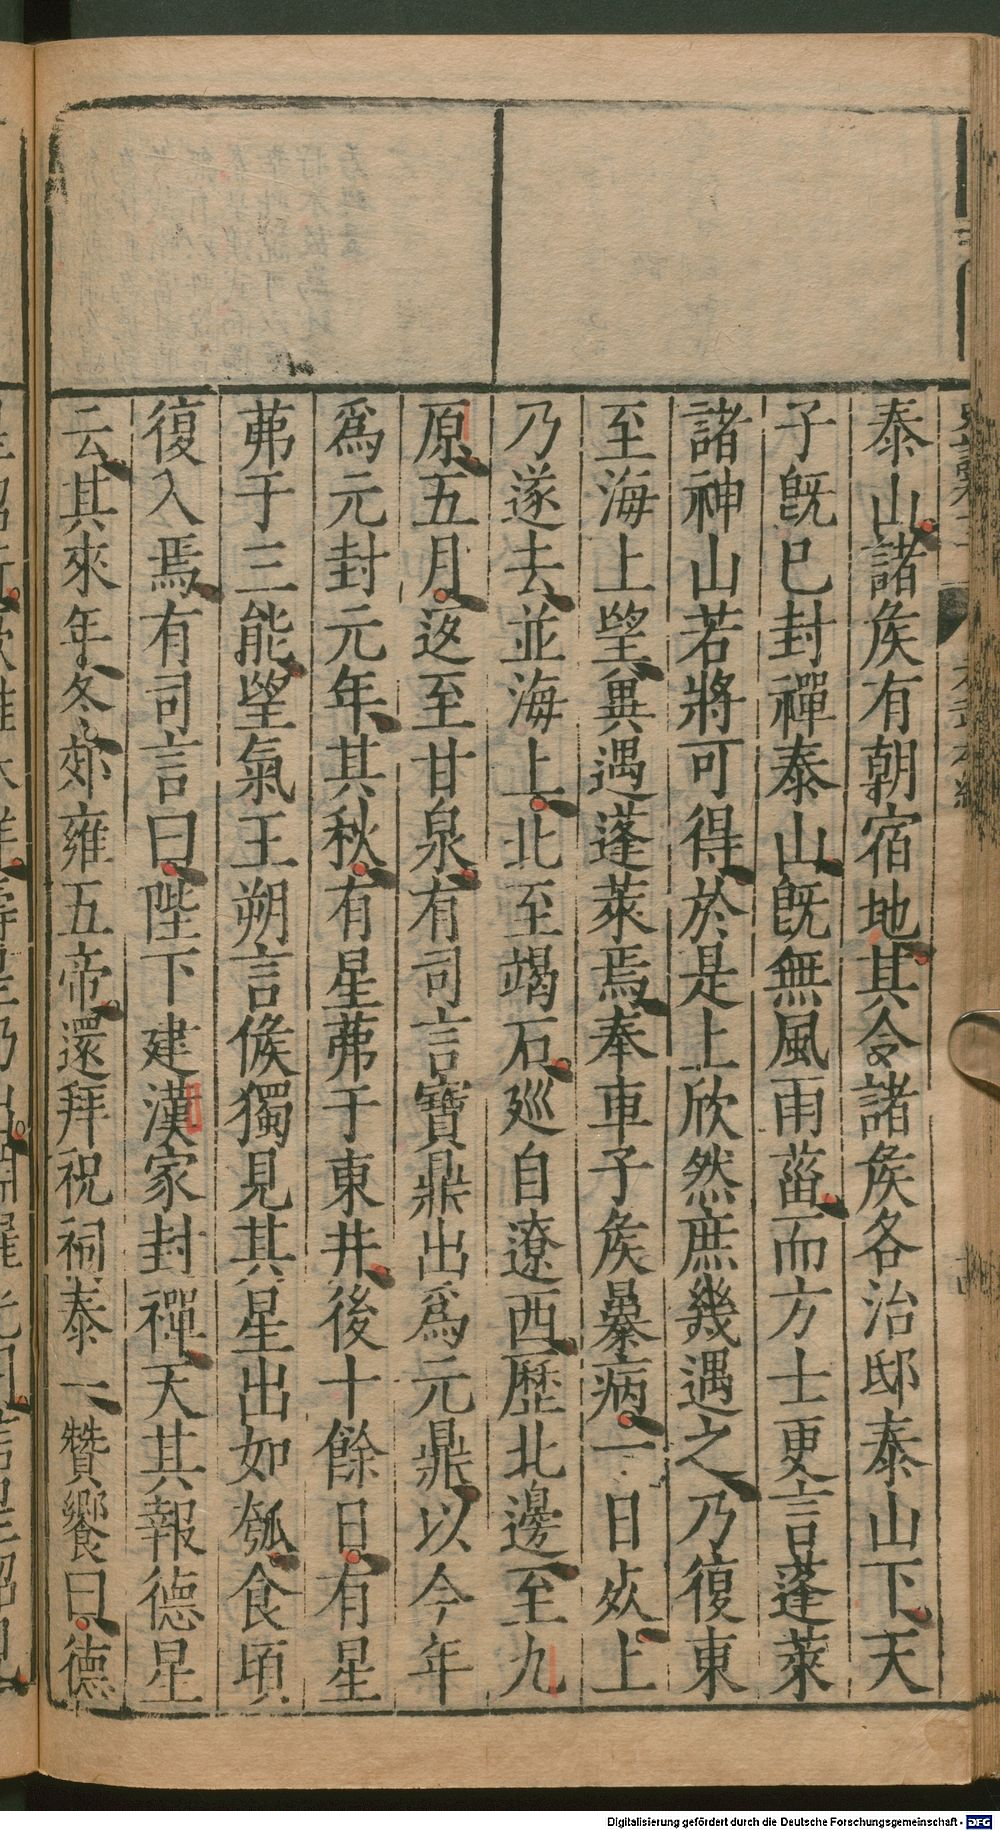 泰山諸矦有朝宿地其令諸矦各治邸泰山下天
子旣巳封禪泰山旣無風雨菑而方士更言蓬萊
諸神山若將可得於是上欣然庶幾遇之乃復東
至海上望兾遇蓬萊焉奉車子矦暴病一日死上
乃遂去並海上北至碣石廵自遼西歷北邊至九
原五月返至甘泉有司言寶鼎出爲元鼎以今年
爲元封元年其秋有星茀于東井後十餘日有星
茀于三能望氣王朔言候獨見其星出如瓠食頃
復入焉有司言曰陛下建漢家封禪天其報德星
云其來年冬郊雍五帝還拜祝祠泰一贊饗曰德
Digitalisierung gefördert durch die Deutsche Forschungsgemeinschaft - DFG